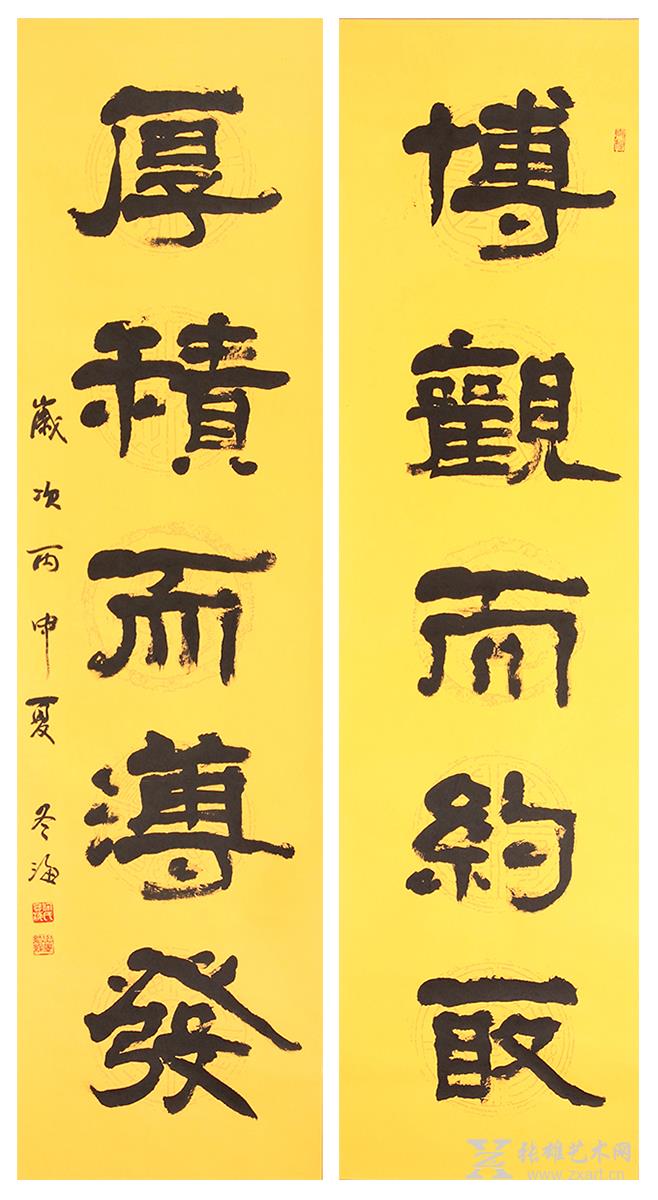 博觀而約取
厚積而薄發
歲次丙申夏 冬海
张雄艺术网
www.zxart.cn